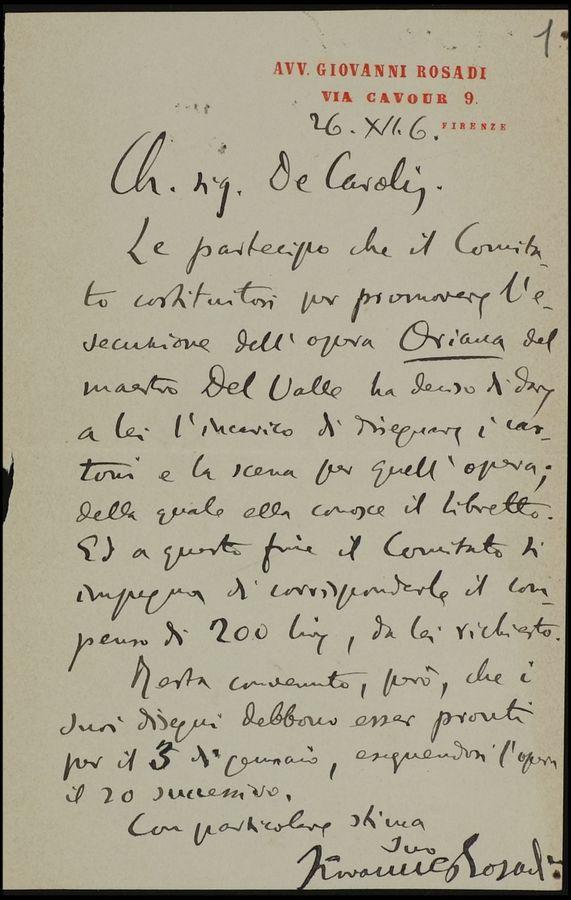 1
AVV. GIOVANNI ROSADI
VIA CAVOUR 9.
FIRENZE
26. XI. 6.
Ch. sig. De Carolis.
Le partecipo che il Comita-
to costituitosi per promovere l'e-
secuzione dell'opera Oriana del
maestro Del Valle ha deciso di dare
a lei l'incarico di disegnare i car-
toni e la scena per quell'opera;
della quale ella conosce il libretto.
Ed a questo fine il Comitato si
impegna di corrisponderle il com-
penso di 200 lire, da lei richiesto.
Resta convenuto, però, che i
suoi disegni debbono esser pronti
per il 3 di gennaio, eseguendosi l'opera
il 20 successivo.
Con particolare stima
Suo
Giovanni Rosadi